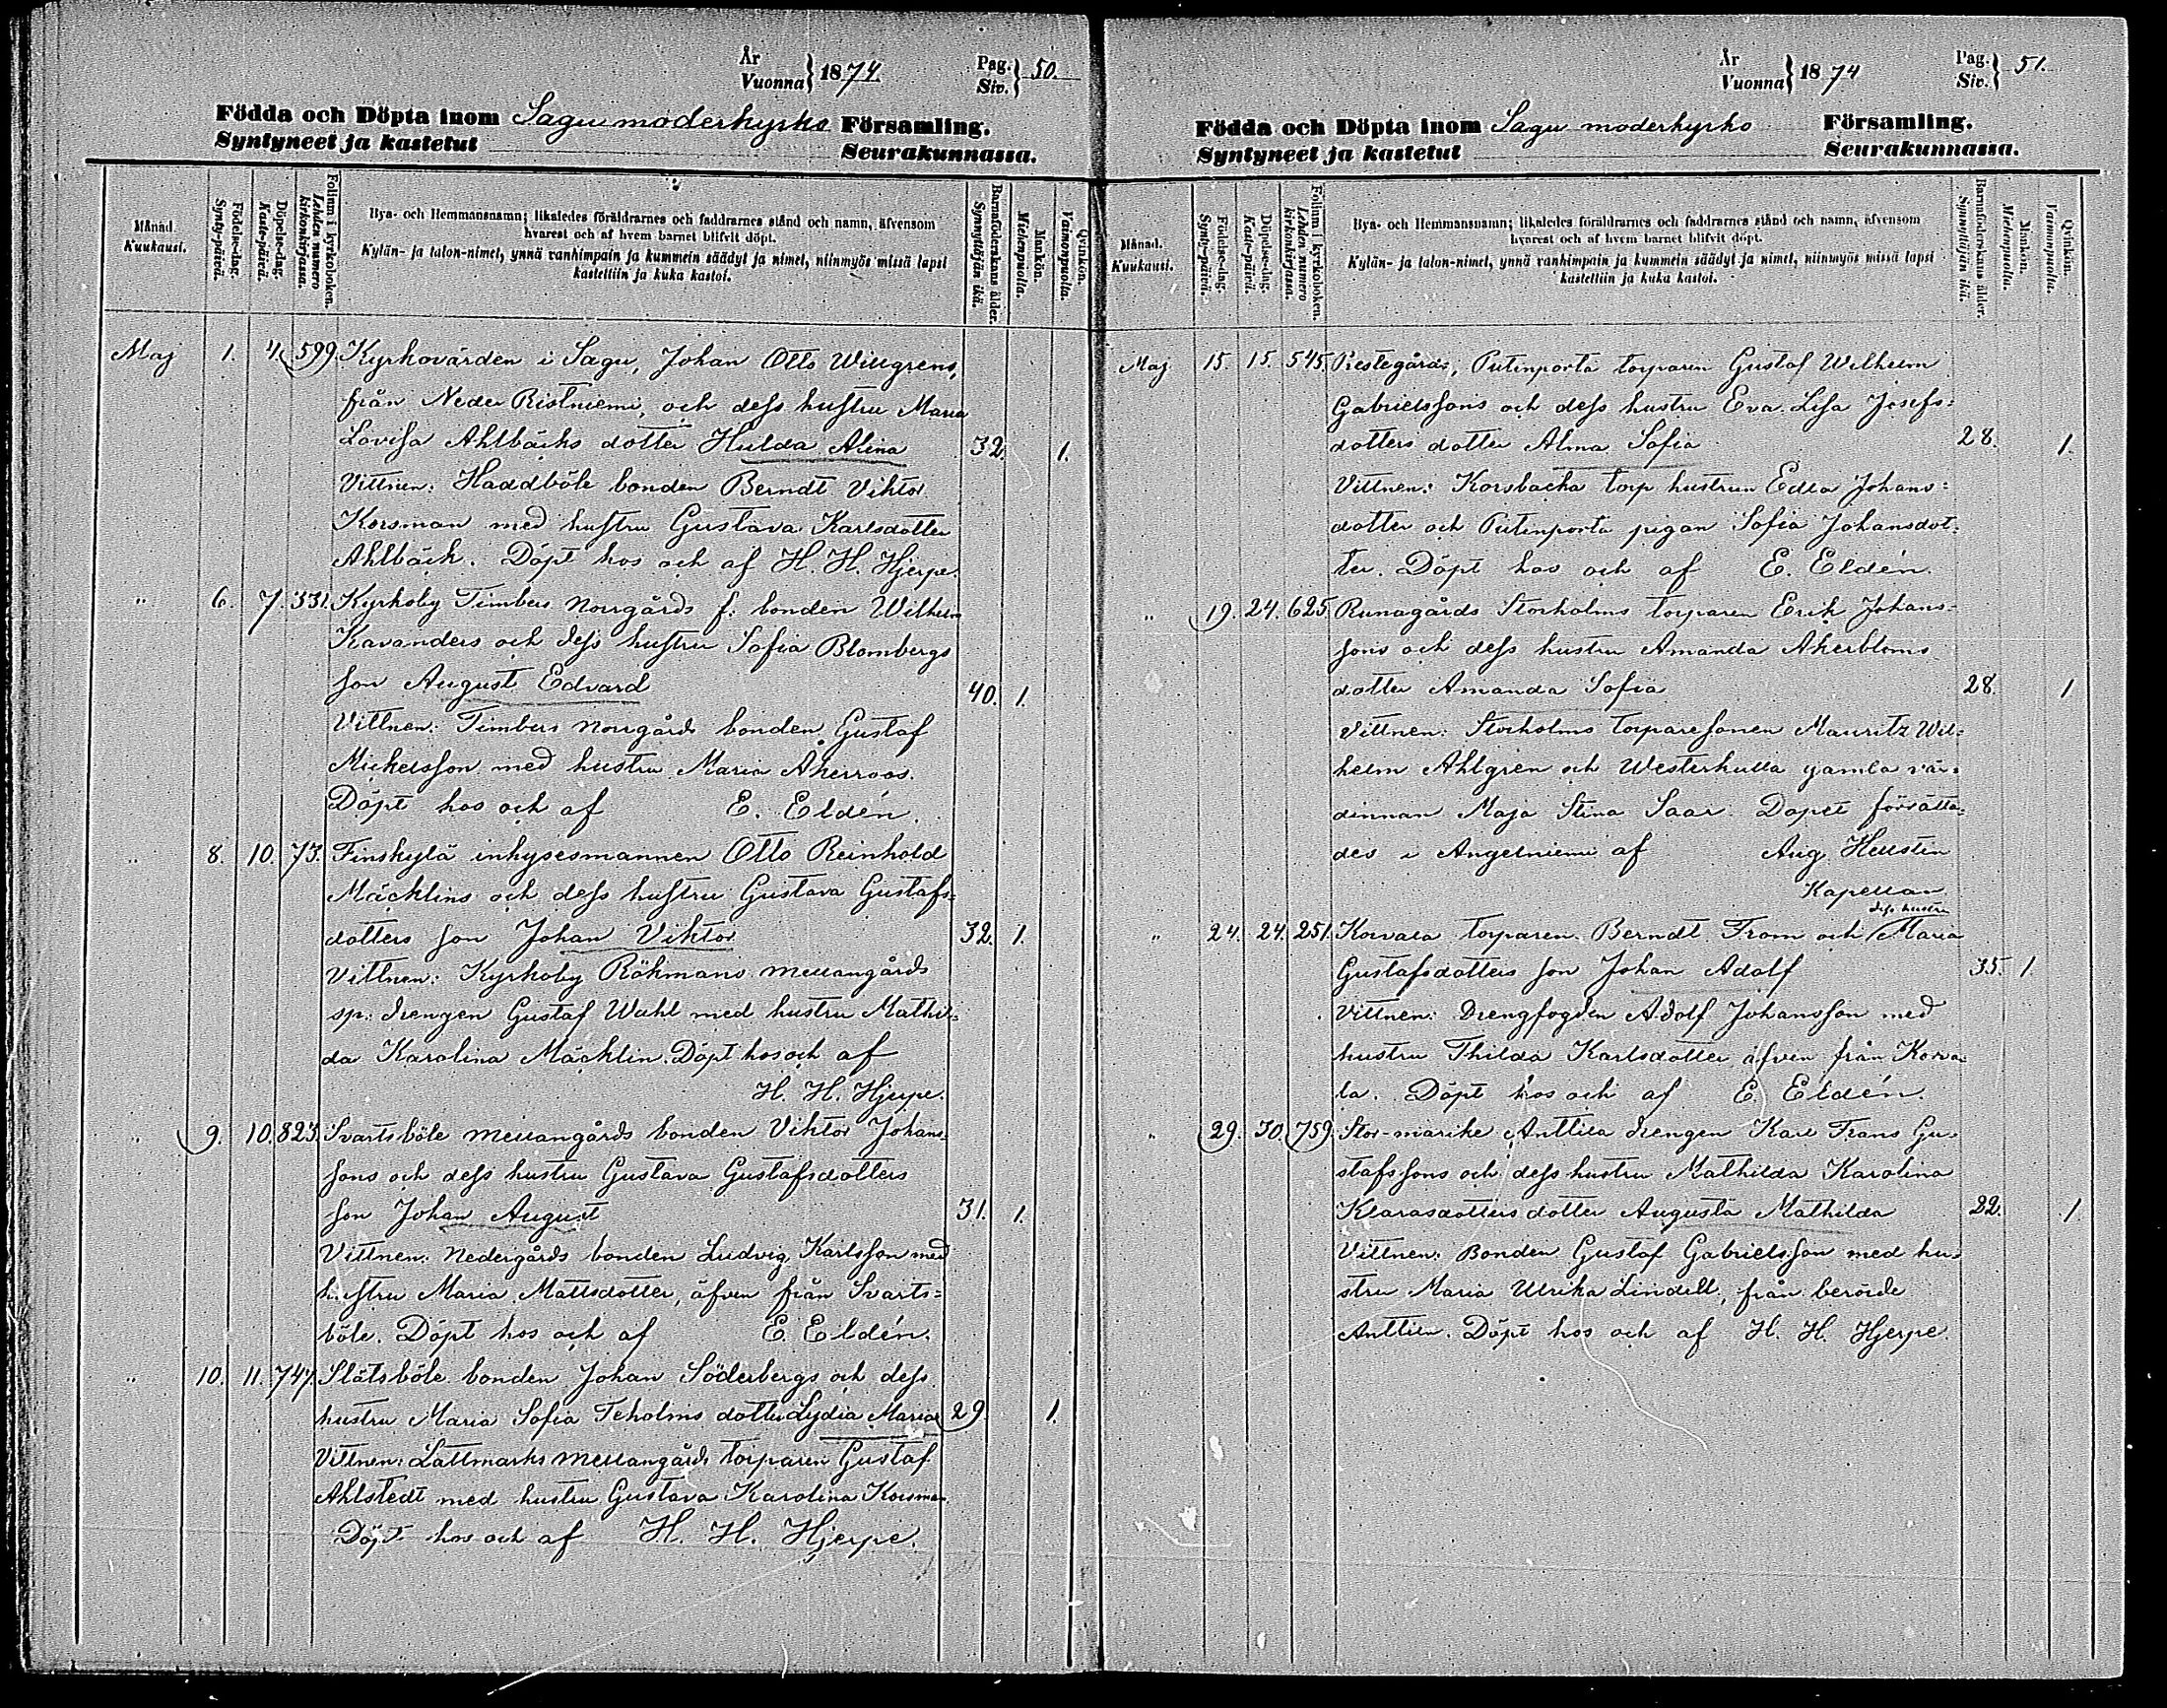 År
Vuonna } 1874.
Pag.
Siv. } 50.
Födda och Döpta inom Sagu moderkyrko Församling.
Syntyneet ja kastetut Seurakunnassa.
Månad.
Kuukausi.
Födelse-dag.
Synty-päivä.
Döpelse-dag.
Kaste-päivä.
Folium i kyrkoboken.
Lehden numero kirkonkirjassa.
Bya- och Hemmansnamn; likaledes föräldrarnes och faddrarnes stånd och namn, äfvensom
hvarest och af hvem barnet blifvit döpt.
Kylän- ja talon-nimet, ynnä vanhimpain ja kummein säädyt ja nimet, niinmyös missä lapsi
kastettiin ja kuka kastoi.
Barnaföderskans ålder.
Synnyttäjän ikä.
Mankön.
Miehenpuolta.
Qvinkön.
Vaimonpuolta.
Maj 1. 4. 599. Kyrkovärden i Sagu, Johan Otto Willgrens,
från Neder Ristniemi, och dess hustru Maria
Lovisa Ahlbäcks dotter Hulda Alina 32. 1.
Vittnen: Haddböle bonden Berndt Viktor
Korsman med hustru Gustava Karlsdotter
Ahlbäck. Döpt hos och af H. H. Hjerpe.
" 6. 7. 331. Kyrkoby Timbers Norrgårds f. bonden Wilhelm
Kavanders och dess hustru Sofia Blombergs
son August Edvard 40. 1.
Vittnen: Timbers Norrgårds bonden Gustaf
Mickelsson med hustru Maria Åkerroos.
Döpt hos och af E. Eldén.
" 8. 10. 73. Finskylä inhysesmannen Otto Reinhold
Mäcklins och dess hustru Gustava Gustafs=
dotters son Johan Viktor 32. 1.
Vittnen: Kyrkoby Röhmans mellangårds
sp. drengen Gustaf Wahl med hustru Mathil=
da Karolina Mäcklin. Döpt hos och af
H. H. Hjerpe.
" 9. 10. 823. Svartsböle mellangårds bonden Viktor Johans=
sons och dess hustru Gustava Gustafsdotters
son Johan August 31. 1.
Vittnen: Nedergårds bonden Ludvig Karlsson med
hustru Maria Mattsdotter, äfven från Svarts=
böle. Döpt hos och af E. Eldén.
" 10. 11. 747. Slätsböle bonden Johan Söderbergs och dess
hustru Maria Sofia Teholms dotter Lydia Maria 29. 1.
Vittnen: Lattmarks mellangårds torparen Gustaf
Ahlstedt med hustru Gustava Karolina Korsman
Döpt hos och af H. H. Hjerpe.
År
Vuonna } 1874
Pag.
Siv. } 51.
Födda och Döpta inom Sagu moderkyrko Församling.
Syntyneet ja kastetut Seurakunnassa.
Månad.
Kuukausi.
Födelse-dag.
Synty-päivä.
Döpelse-dag.
Kaste-päivä.
Folium i kyrkoboken.
Lehden numero kirkonkirjassa.
Bya- och Hemmansnamn; likaledes föräldrarnes och faddrarnes stånd och namn, äfvensom
hvarest och af hvem barnet blifvit döpt.
Kylän- ja talon-nimet, ynnä vanhimpain ja kummein säädyt ja nimet, niinmyös missä lapsi
kastettiin ja kuka kastoi.
Barnaföderskans ålder.
Synnyttäjän ikä.
Mankön.
Miehenpuolta.
Qvinkön.
Vaimonpuolta.
Maj 15. 15. 545. Prestegårds, Putinporta torparen Gustaf Wilhelm
Gabrielssons och dess hustru Eva Lisa Josefs=
dotters dotter Alma Sofia 28. 1.
Vittnen: Korsbacka torp hustrun Edla Johans=
dotter och Putinporta pigan Sofia Johansdot=
ter. Döpt hos och af E. Eldén.
" 19. 24. 625. Runagårds Storholms torparen Erik Johans=
sons och dess hustru Amanda Akerbloms
dotter Amanda Sofia 28. 1
Vittnen: Storholms torparesonen Mauritz Wil=
helm Ahlgren och Westerkulla gamla vär=
dinnan Maja Stina Saar. Dopet förrätta=
des i Angelniemi af Aug. Hellstén
Kapellan
dess hustru
" 24. 24. 251. Korvala torparen Berndt From och Maria
Gustafsdotters son Johan Adolf 35. 1.
Vittnen: Drengfogden Adolf Johansson med
hustru Thilda Karlsdotter äfven från Korva=
la. Döpt hos och af E. Eldén.
" 29. 30. 759. Stor-marike Anttila drengen Karl Frans Gu=
stafssons och dess hustru Mathilda Karolina
Klarasdotters dotter Augusta Mathilda 22. 1
Vittnen: Bonden Gustaf Gabrielsson med hu=
stru Maria Ulrika Lindell, från berörde
Anttila. Döpt hos och af H. H. Hjerpe.